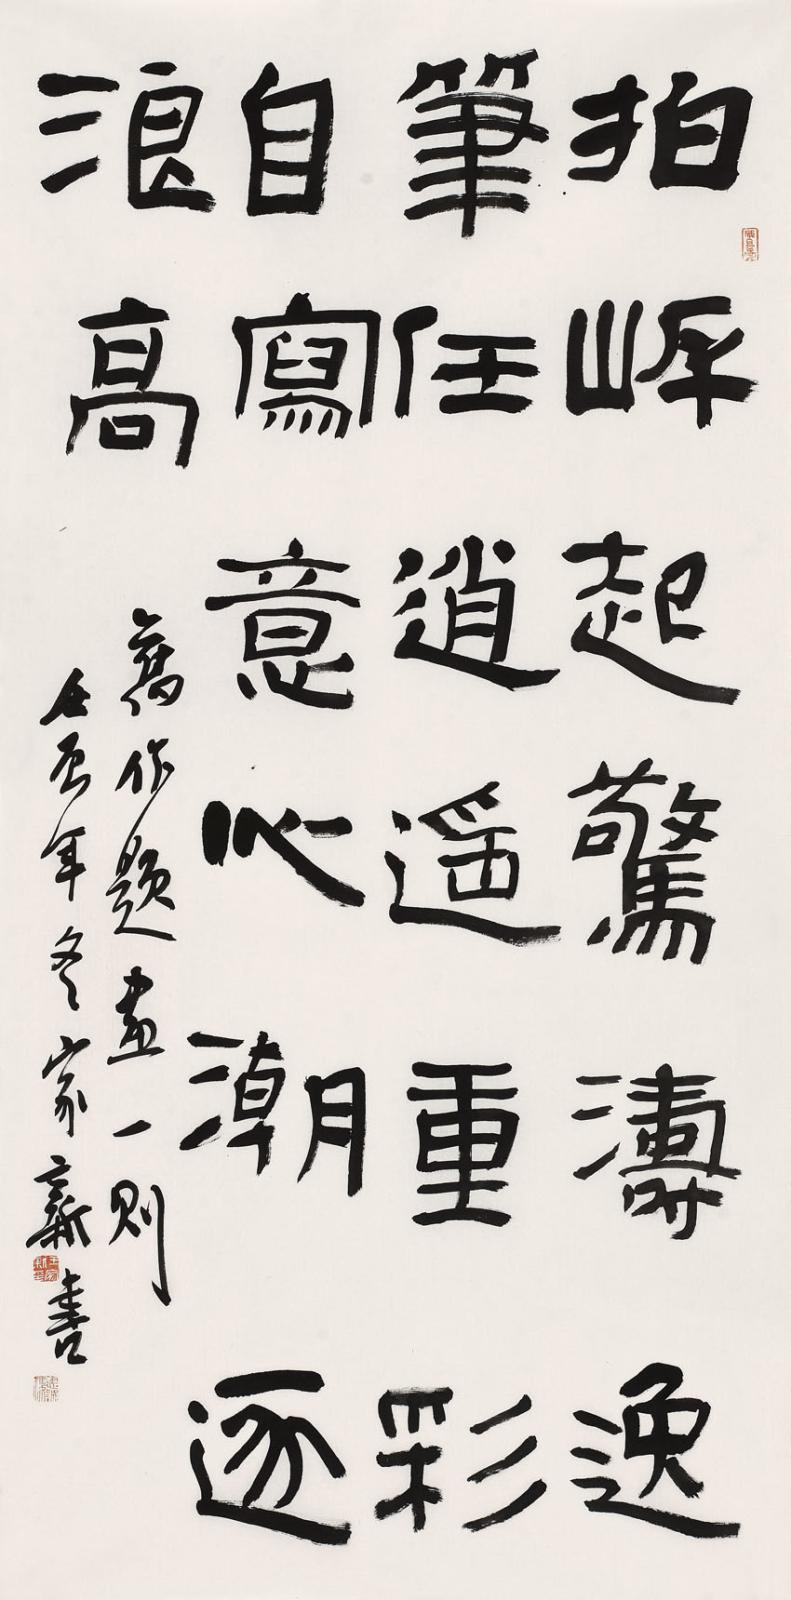 拍岸起驚濤逸
筆任逍遥重彩
自寫意心潮逐
浪高
舊作題畫一則
壬辰年冬家新書